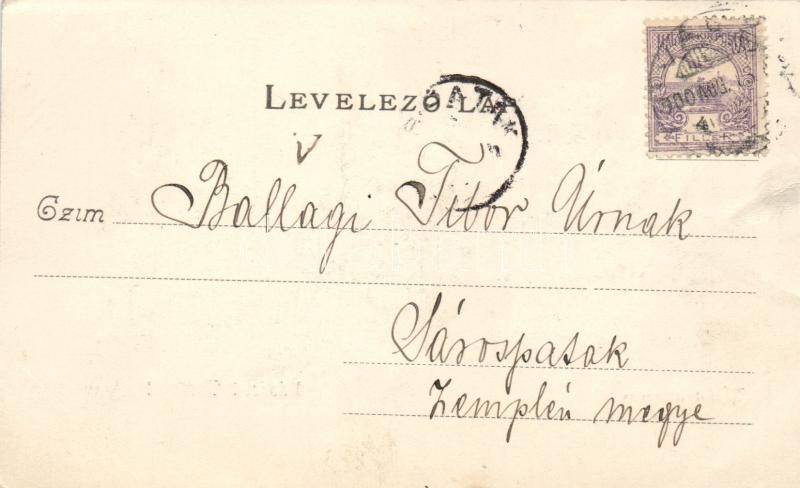 LEVELEZŐ LAP
Czim Ballagi Tibor Úrnak
Sárospatak
Zemplén megye
4
FILLÉR